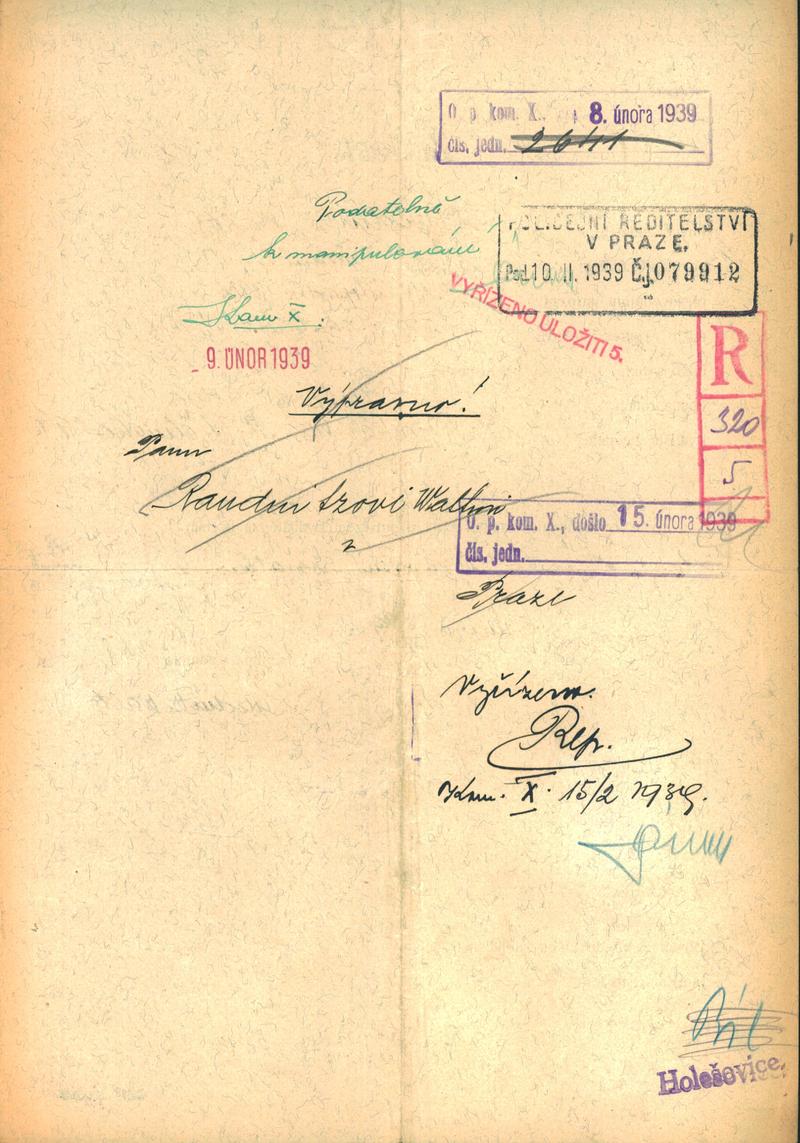 O. p. kom. X., 8. února 1939
čís. jedn. 2641
Podatelně
k manipulování
POLICEJNÍ ŘEDITELSTVÍ
V PRAZE.
Pod. 10. II. 1939 Čj. 079912
VYŘÍZENO ULOŽITI 5.
Kom X.
- 9. ÚNOR 1939
R
320
5
Výpravno!
Panu
Raudnitzovi
v
O. p. kom. X., došlo 15. února 1939
čís. jedn.
Praze
Vyřízeno.
Rep.
Kom. X. 15/2 1939.
Holešovice.